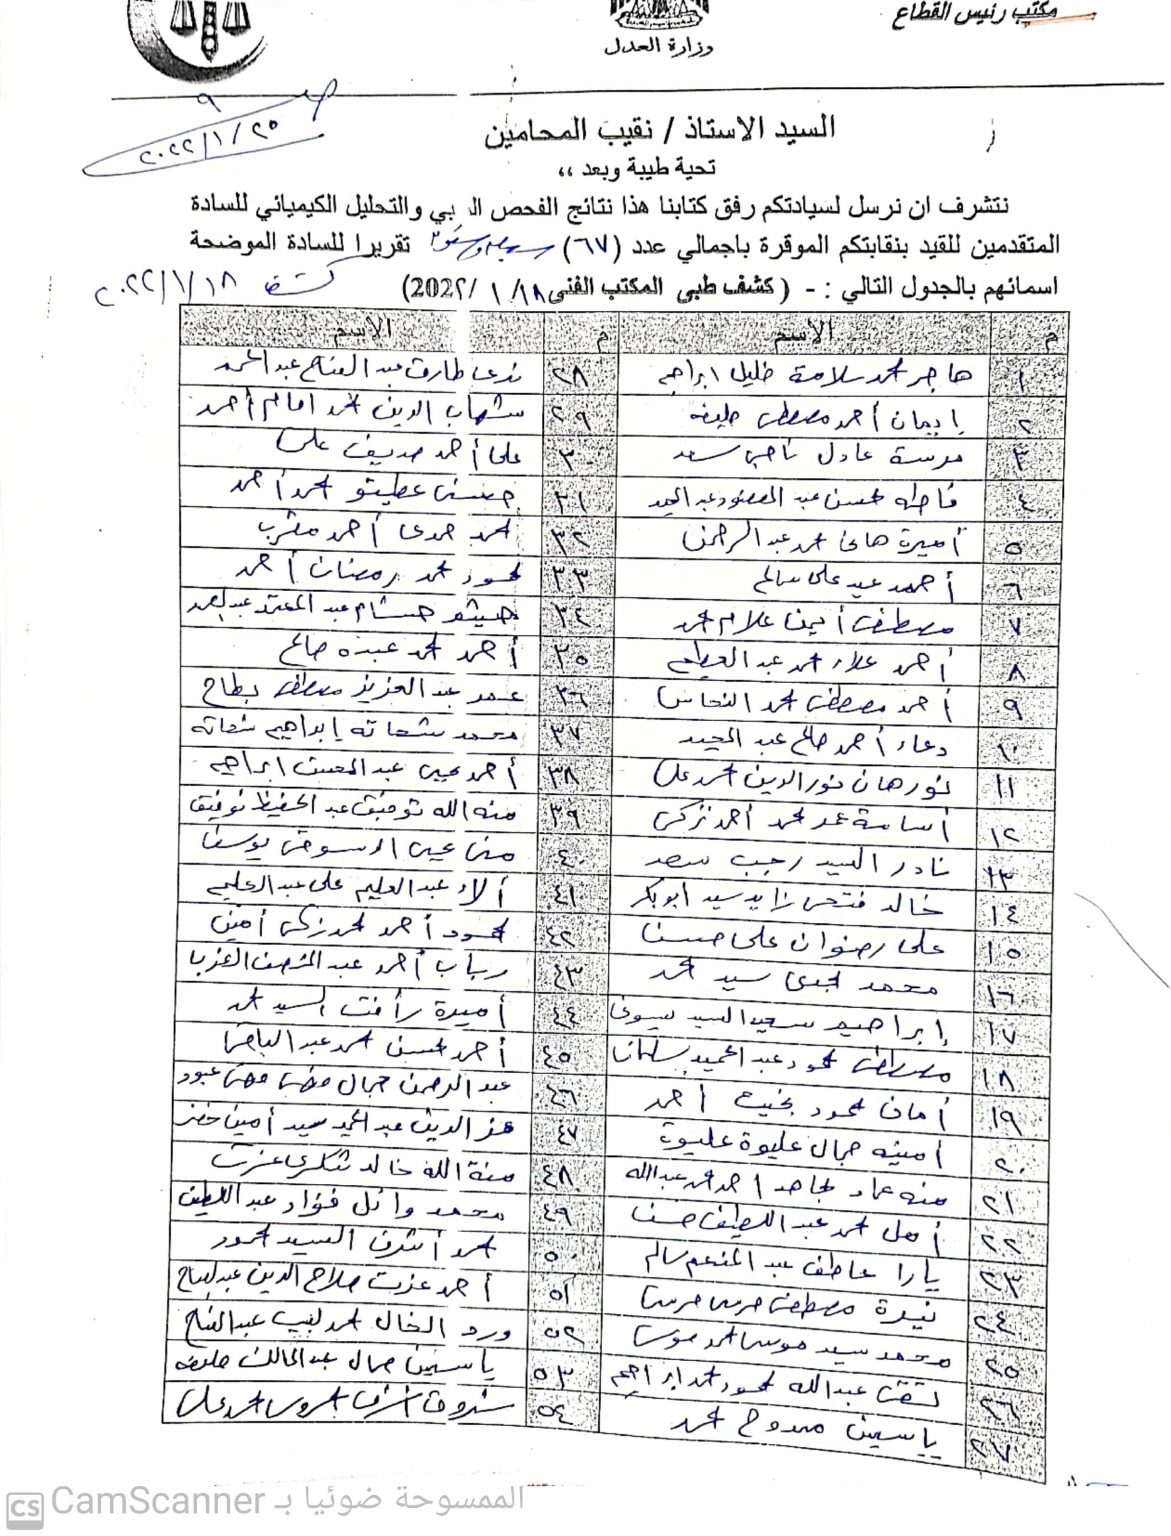 مكتب رئيس القطاع
وزارة العدل
٩
٢٠٢٢/١/٢٥
السيد الاستاذ / نقيب المحامين
تحية طيبة وبعد ،،
نتشرف ان نرسل لسيادتكم رفق كتابنا هذا نتائج الفحص بي والتحليل الكيميائي للسادة
المتقدمين للقيد بنقابتكم الموقرة باجمالي عدد (٦٧) تقريرا للسادة الموضحة
اسمائهم بالجدول التالي : - ( كشف طبى المكتب الفنى ١٨/ ١ /2022)
كشف ٢٠٢٢/١/١٨
م الاسم م الاسم
١ هاجر محمد سلامة خليل ابراهيم ٢٨ ندى طارق عبد الفتاح عبد الحميد
٢ إيمان أحمد مصطفى خليفه ٢٩ شهاب الدين محمد امام أحمد
٣ عادل ناجى سعد ٣٠ على أحمد على
٤ فاطمه محسن عبد المقصود عبد الحميد ٣١ محمد أحمد
٥ أميرة هانى محمد عبد الرحمن ٣٢ محمد حمدى أحمد
٦ أحمد عيد على سالم ٣٣ محمود محمد رمضان أحمد
٧ مصطفى أيمن علام محمد ٣٤ هشام عبد
٨ أحمد علاء محمد عبد العظيم ٣٥ أحمد محمد عبده صالح
٩ أحمد مصطفى محمد النحاس ٣٦ عمر عبد العزيز مصطفى بطاح
١٠ دعاء أحمد صالح عبد المجيد ٣٧ محمد شحاته إبراهيم شحاته
١١ نورهان نور الدين محمد على ٣٨ أحمد يحيى عبد المحسن ابراهيم
١٢ أسامة عمر محمد أحمد زكى ٣٩ منه الله توفيق عبد الحفيظ توفيق
١٣ نادر السيد رجب سعد ٤٠ منى يحيى الدسوقى يوسف
١٤ خالد فتحى زايد سيد ابوبكر ٤١ ألاء عبد العليم على عبد العليم
١٥ على رضوان على حسن ٤٢ محمود أحمد محمد زكى أمين
١٦ محمد مجدى سيد محمد ٤٣ رباب أحمد عبد المنصف
١٧ إبراهيم سعيد السيد بسيونى ٤٤ أميرة رأفت السيد محمد
١٨ مصطفى محمود عبد الحميد سلمان ٤٥ أحمد محسن محمد عبد الباقى
١٩ أمانى محمود بخيت أحمد ٤٦ عبد الرحمن جمال عبود
٢٠ أمينه جمال عليوة عليوة ٤٧ عز الدين عبد الحميد سيد أمين خضر
٢١ منه عماد مجاهد احمد محمد عبدالله ٤٨ منة الله خالد شكرى عزت
٢٢ أمل محمد عبد اللطيف حسن ٤٩ محمد وائل فؤاد عبد اللطيف
٢٣ يارا عاطف عبد المنعم سالم ٥٠ محمد أشرف السيد محمود
٢٤ نيرة مصطفى مرسى مرسى ٥١ أحمد عزت صلاح الدين
٢٥ محمد سيد موسى محمد موسى ٥٢ ورد الخال محمد لبيب عبد الفتاح
٢٦ تقى عبدالله محمود محمد ابراهيم ٥٣ ياسمين جمال عبد الخالق خليفه
٢٧ ياسمين ممدوح محمد ٥٤ شروق اشرف محمد على
CS CamScanner الممسوحة ضوئيا بـ